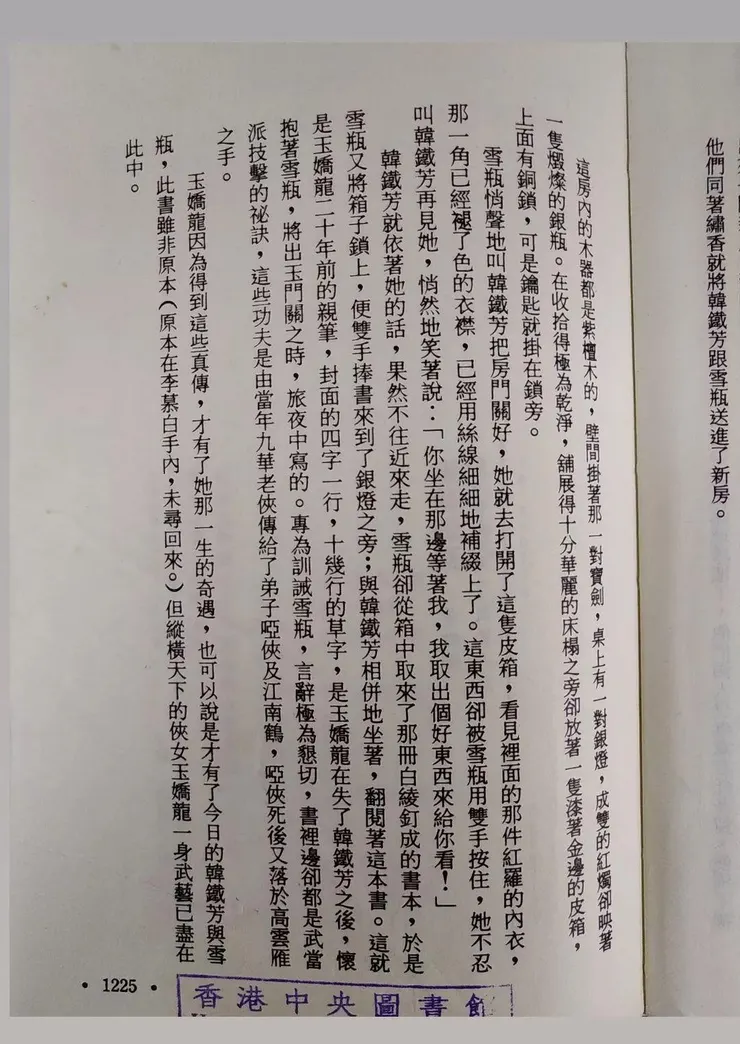 他們同著繡香就將韓鐵芳跟雪瓶送進了新房。
這房內的木器都是紫檀木的，壁間掛著那一對寶劍，桌上有一對銀燈，成雙的紅燭卻映著
一隻燬燦的銀瓶。在收拾得極為乾淨，舖展得十分華麗的床榻之旁卻放著一隻漆著金邊的皮箱，
上面有銅鎖，可是鑰匙就掛在鎖旁。
雪瓶悄聲地叫韓鐵芳把房門關好，她就去打開了這隻皮箱，看見裡面的那件紅羅的內衣，
那一角已經褪了色的衣襟，已經用絲線細細地補綴上了。這東西卻被雪瓶用雙手按住，她不忍
叫韓鐵芳再見她，悄然地笑著說：「你坐在那邊等著我，我取出個好東西來給你看！」
韓鐵芳就依著她的話，果然不往近來走，雪瓶卻從箱中取來了那冊白綾釘成的書本，於是
雪瓶又將箱子鎖上，便雙手捧書來到了銀燈之旁；與韓鐵芳相併地坐著，翻閱著這本書。這就
是玉嬌龍二十年前的親筆，封面的四字一行，十幾行的草字，是玉嬌龍在失了韓鐵芳之後，懷
抱著雪瓶，將出玉門關之時，旅夜中寫的。專為訓誡雪瓶，言辭極為懇切，書裡邊卻都是武當
派技擊的祕訣，這些功夫是由當年九華老俠傳給了弟子啞俠及江南鶴，啞俠死後又落於高雲雁
之手。
玉嬌龍因為得到這些真傳，才有了她那一生的奇遇，也可以說是才有了今日的韓鐵芳與雪
瓶，此書雖非原本（原本在李慕白手內，未尋回來。）但縱橫天下的俠女玉嬌龍一身武藝已盡在
此中。
• 1225 •
香港中央圖書館